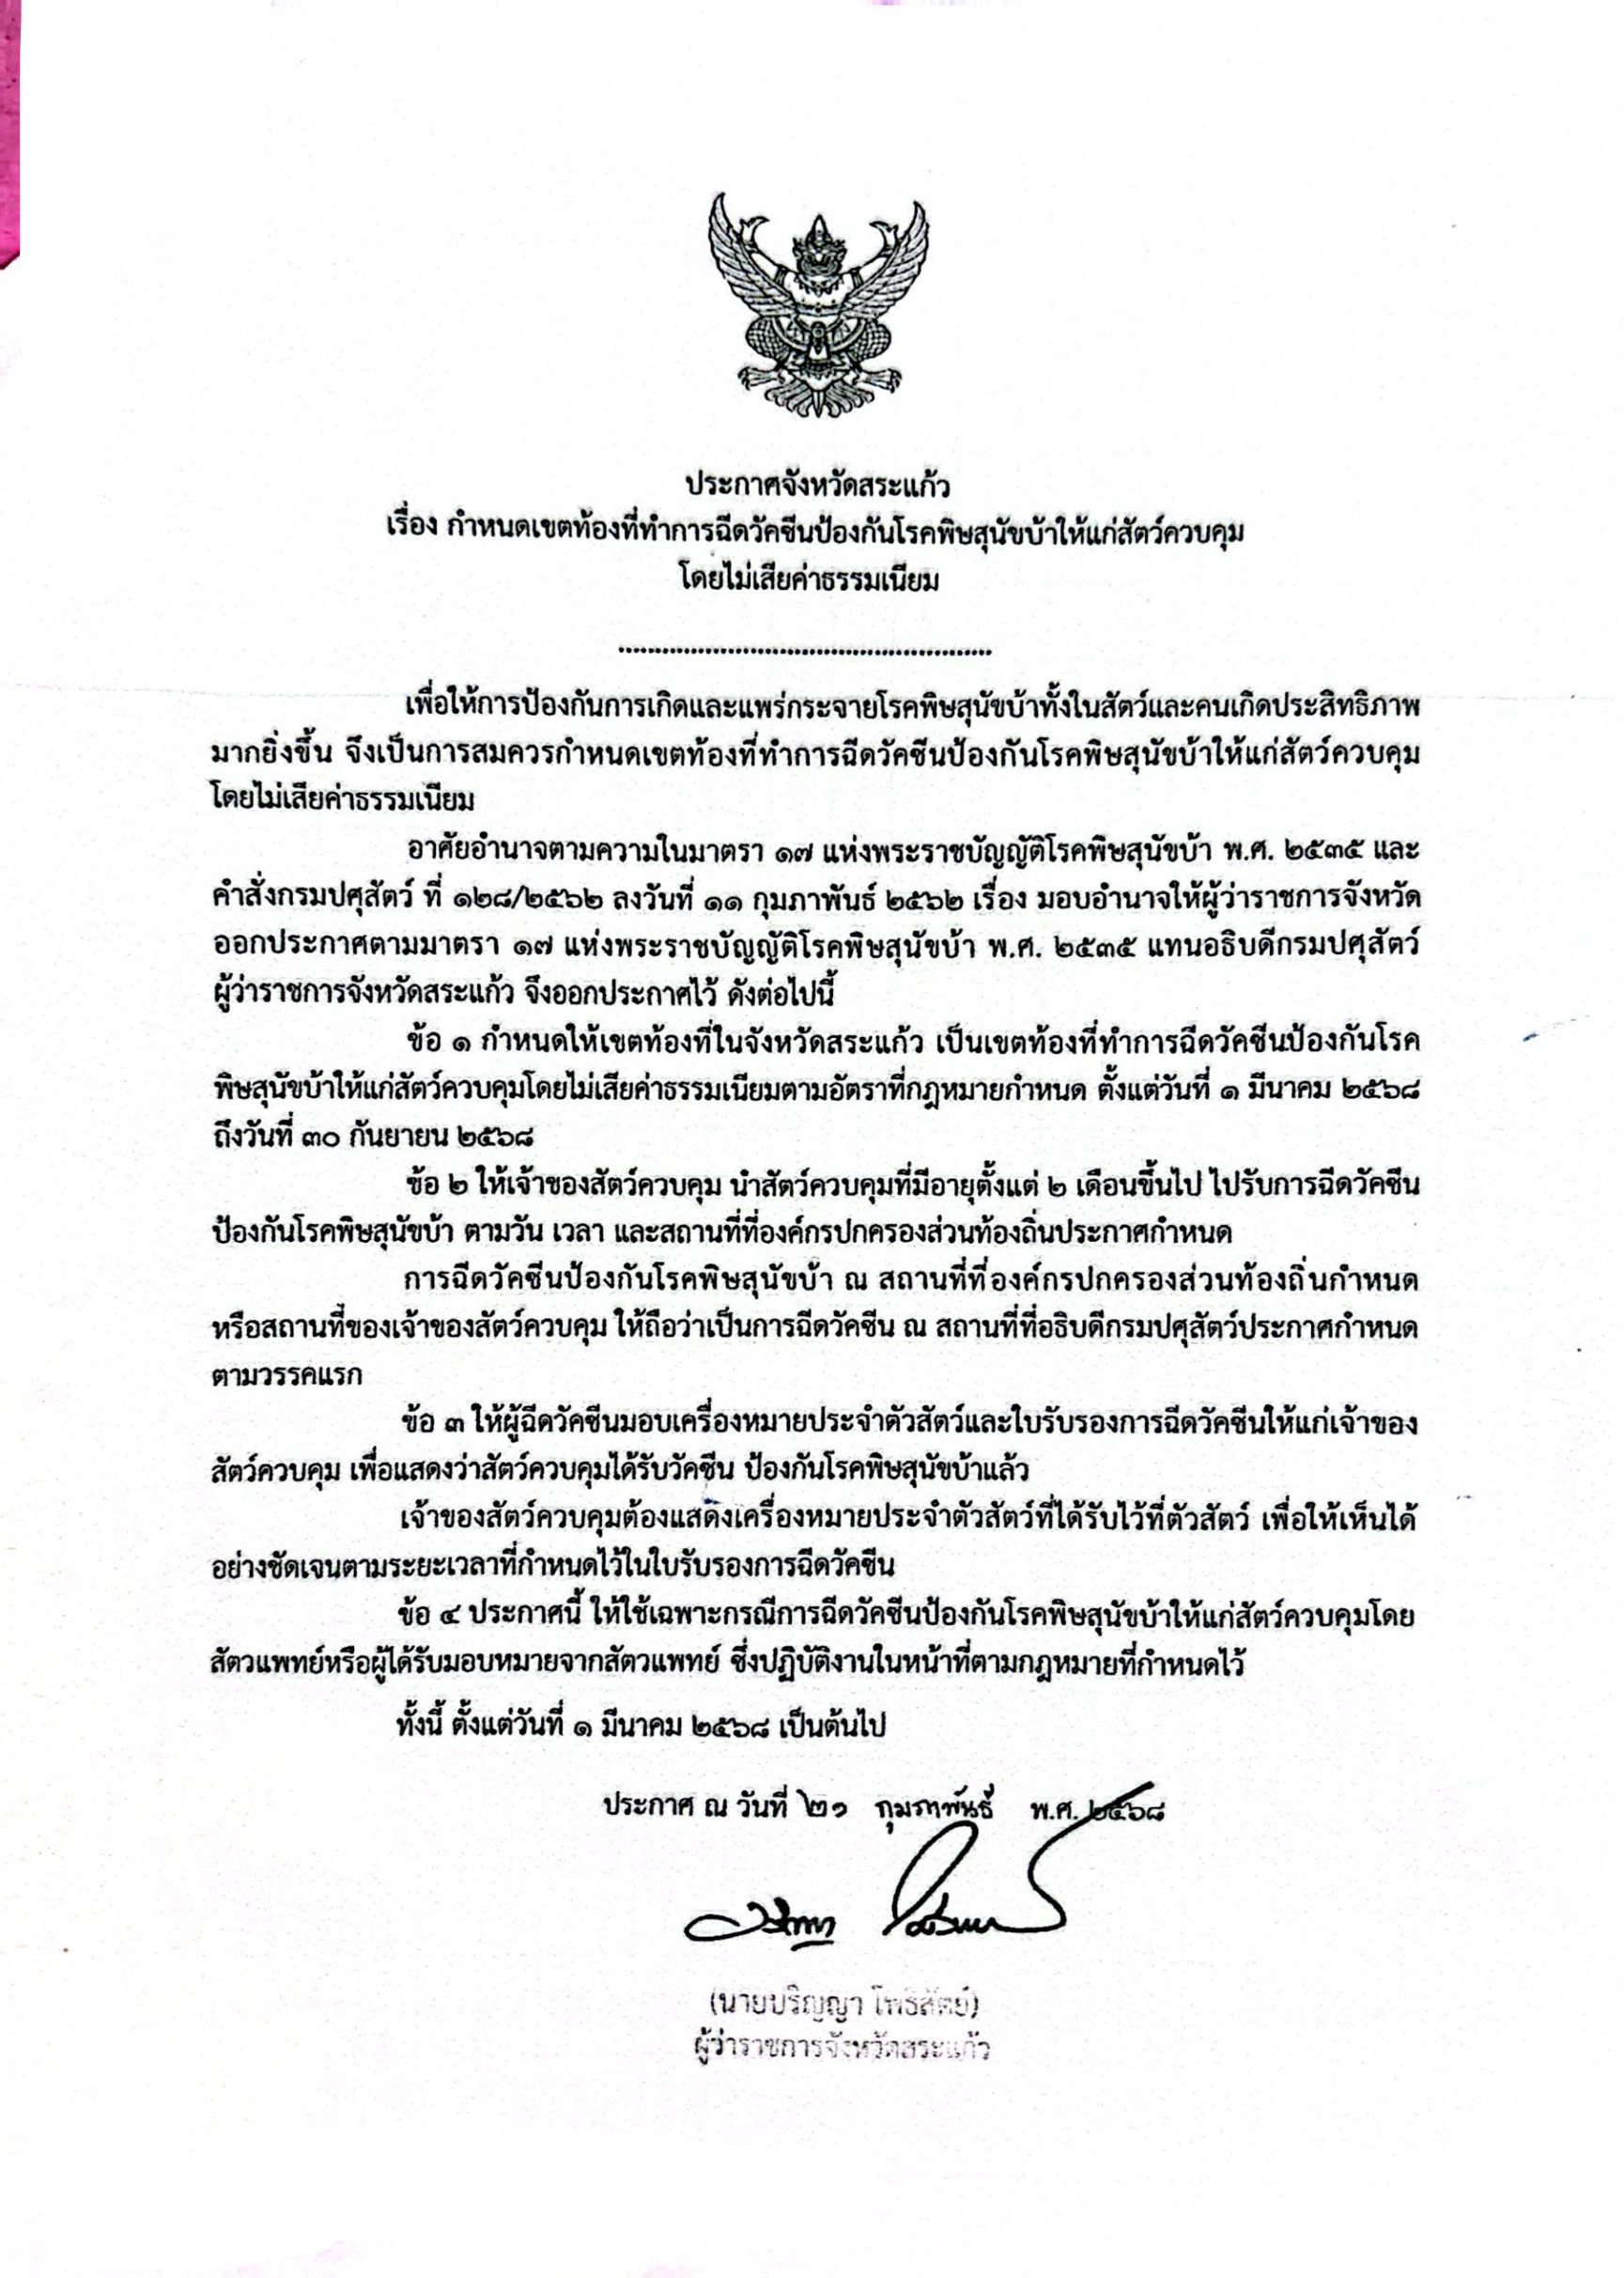 ประกาศจังหวัดสระแก้ว
เรื่อง กำหนดเขตท้องที่ทำการฉีดวัคซีนป้องกันโรคพิษสุนัขบ้าให้แก่สัตว์ควบคุม
โดยไม่เสียค่าธรรมเนียม
....................................................
เพื่อให้การป้องกันการเกิดและแพร่กระจายโรคพิษสุนัขบ้าทั้งในสัตว์และคนเกิดประสิทธิภาพ
มากยิ่งขึ้น จึงเป็นการสมควรกำหนดเขตท้องที่ทำการฉีดวัคซีนป้องกันโรคพิษสุนัขบ้าให้แก่สัตว์ควบคุม
โดยไม่เสียค่าธรรมเนียม
อาศัยอำนาจตามความในมาตรา ๑๗ แห่งพระราชบัญญัติโรคพิษสุนัขบ้า พ.ศ. ๒๕๓๕ และ
คำสั่งกรมปศุสัตว์ ที่ ๑๒๘/๒๕๖๒ ลงวันที่ ๑๑ กุมภาพันธ์ ๒๕๖๒ เรื่อง มอบอำนาจให้ผู้ว่าราชการจังหวัด
ออกประกาศตามมาตรา ๑๗ แห่งพระราชบัญญัติโรคพิษสุนัขบ้า พ.ศ. ๒๕๓๕ แทนอธิบดีกรมปศุสัตว์
ผู้ว่าราชการจังหวัดสระแก้ว จึงออกประกาศไว้ ดังต่อไปนี้
ข้อ ๑ กำหนดให้เขตท้องที่ในจังหวัดสระแก้ว เป็นเขตท้องที่ทำการฉีดวัคซีนป้องกันโรค
พิษสุนัขบ้าให้แก่สัตว์ควบคุมโดยไม่เสียค่าธรรมเนียมตามอัตราที่กฎหมายกำหนด ตั้งแต่วันที่ ๑ มีนาคม ๒๕๖๘
ถึงวันที่ ๓๐ กันยายน ๒๕๖๘
ข้อ ๒ ให้เจ้าของสัตว์ควบคุม นำสัตว์ควบคุมที่มีอายุตั้งแต่ ๒ เดือนขึ้นไป ไปรับการฉีดวัคซีน
ป้องกันโรคพิษสุนัขบ้า ตามวัน เวลา และสถานที่ที่องค์กรปกครองส่วนท้องถิ่นประกาศกำหนด
การฉีดวัคซีนป้องกันโรคพิษสุนัขบ้า ณ สถานที่ที่องค์กรปกครองส่วนท้องถิ่นกำหนด
หรือสถานที่ของเจ้าของสัตว์ควบคุม ให้ถือว่าเป็นการฉีดวัคซีน ณ สถานที่ที่อธิบดีกรมปศุสัตว์ประกาศกำหนด
ตามวรรคแรก
ข้อ ๓ ให้ผู้ฉีดวัคซีนมอบเครื่องหมายประจำตัวสัตว์และใบรับรองการฉีดวัคซีนให้แก่เจ้าของ
สัตว์ควบคุม เพื่อแสดงว่าสัตว์ควบคุมได้รับวัคซีน ป้องกันโรคพิษสุนัขบ้าแล้ว
เจ้าของสัตว์ควบคุมต้องแสดงเครื่องหมายประจำตัวสัตว์ที่ได้รับไว้ที่ตัวสัตว์ เพื่อให้เห็นได้
อย่างชัดเจนตามระยะเวลาที่กำหนดไว้ในใบรับรองการฉีดวัคซีน
ข้อ ๔ ประกาศนี้ ให้ใช้เฉพาะกรณีการฉีดวัคซีนป้องกันโรคพิษสุนัขบ้าให้แก่สัตว์ควบคุมโดย
สัตวแพทย์หรือผู้ได้รับมอบหมายจากสัตวแพทย์ ซึ่งปฏิบัติงานในหน้าที่ตามกฎหมายที่กำหนดไว้
ทั้งนี้ ตั้งแต่วันที่ ๑ มีนาคม ๒๕๖๘ เป็นต้นไป
ประกาศ ณ วันที่ ๒๑ กุมภาพันธ์ พ.ศ. ๒๕๖๘
(นายปริญญา โพธิสัตย์)
ผู้ว่าราชการจังหวัดสระแก้ว